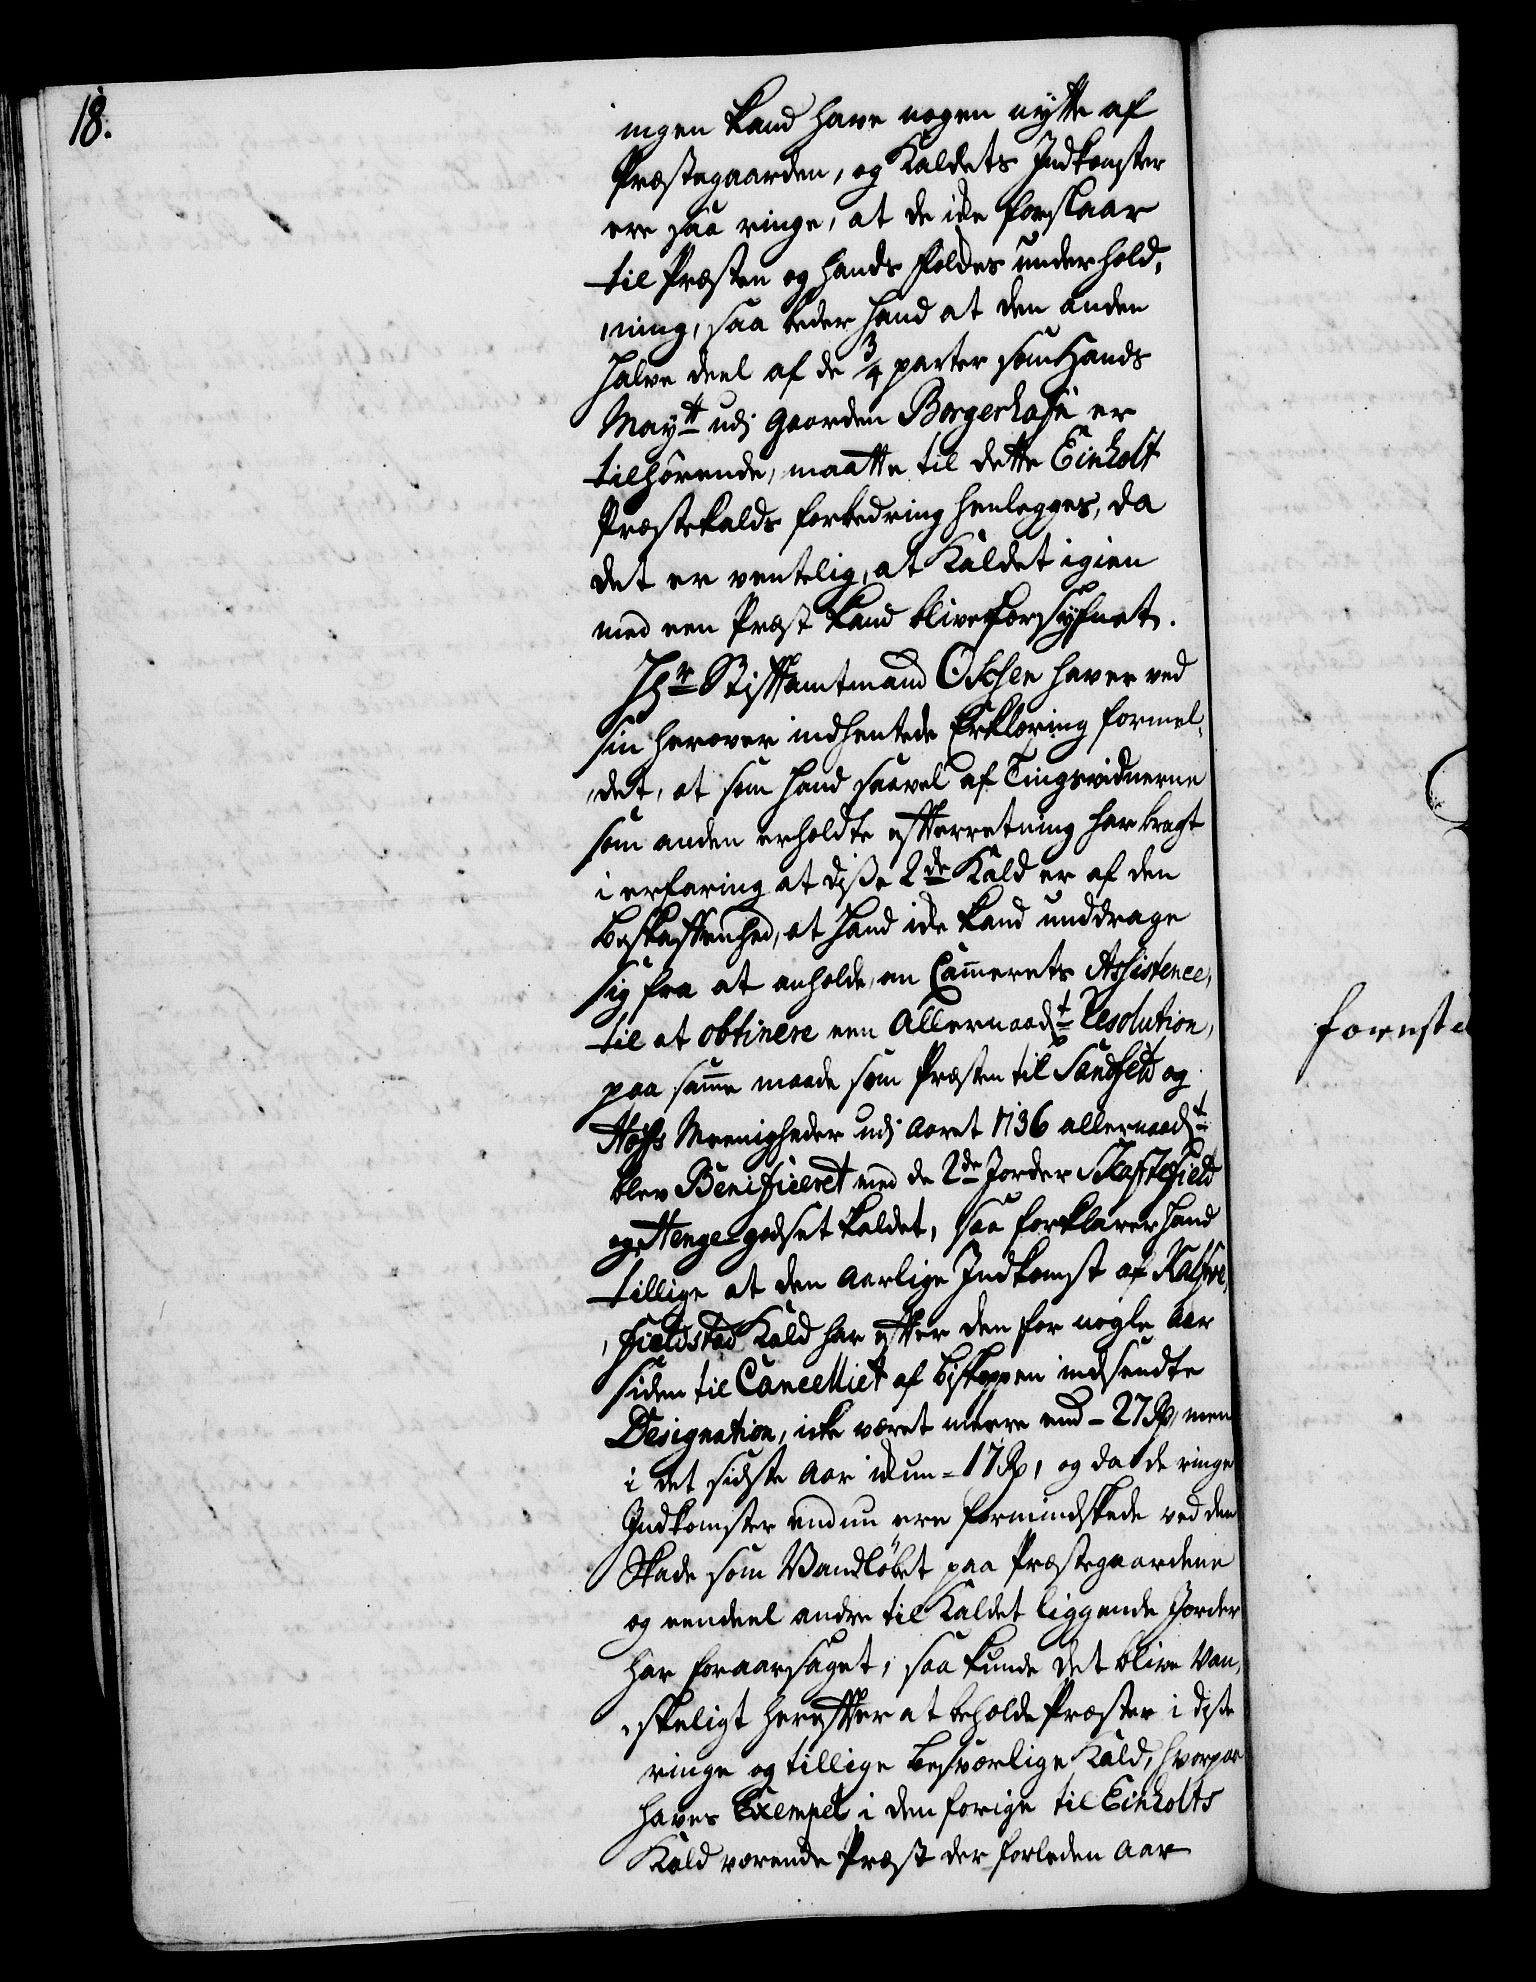 18.
ingen kand have nogen nytte af
Præstegaarden, og Kaldets Indkomster
ere saa ringe, at de icke forslaar
til Præsten og hands Foldes underhold,
,ning, saa beder hand at den anden
halve deel af de 3/4 parter som Hands
Mayt udj gaarden Borgerhafn er
tilhørende, maatte til dette Einholt
Præstekalds forbedring henlegges, da
det er ventelig, at Kaldet igien
med een Præst kand blive forsyhnet.
Hr Stiftamtmand Ochsen haver ved
sin herover indhentede Erklæring formel,
,det, at som hand saavel af Tingsvidnerne
som anden erholdte efterretning har bragt
i erfaring at disse 2de Kald er af den
beskaffenhed, at hand icke kand unddrage
sig fra at anholde om Cammerets Assistence,
til at obtinere een Allernaadt Resolution,
paa samme maade som Præsten til Sandfeld og
Hofs Meenigheder udj aaret 1736 allernaadt
blev Benificeret med de 2de Jorder Skaftefield
og Henge-godset kaldet, saa forklarer hand
tillige at den aarlige Indkomst af Kalfve,
,fieldstad Kald har efter den for nogle aar
siden til Cancelliet af biskoppen indsendte
Designation, icke været meere end - 27 Rd, men
i det sidste aar ickun = 17 Rd, og da de ringe
Indkomster endnu ere formindskede ved den
Skade som Vandløbet paa Præstegaardene
og eendeel andre til Kaldet liggende Jorder
har foraarsaget, saa kunde det blive van,
,skeligt herefter at beholde Præster i diste
ringe og tillige besværlige Kald, hvorpaa
haves Exempel i den forige til Einholts
Kald værende Præst der forleden aar
forest